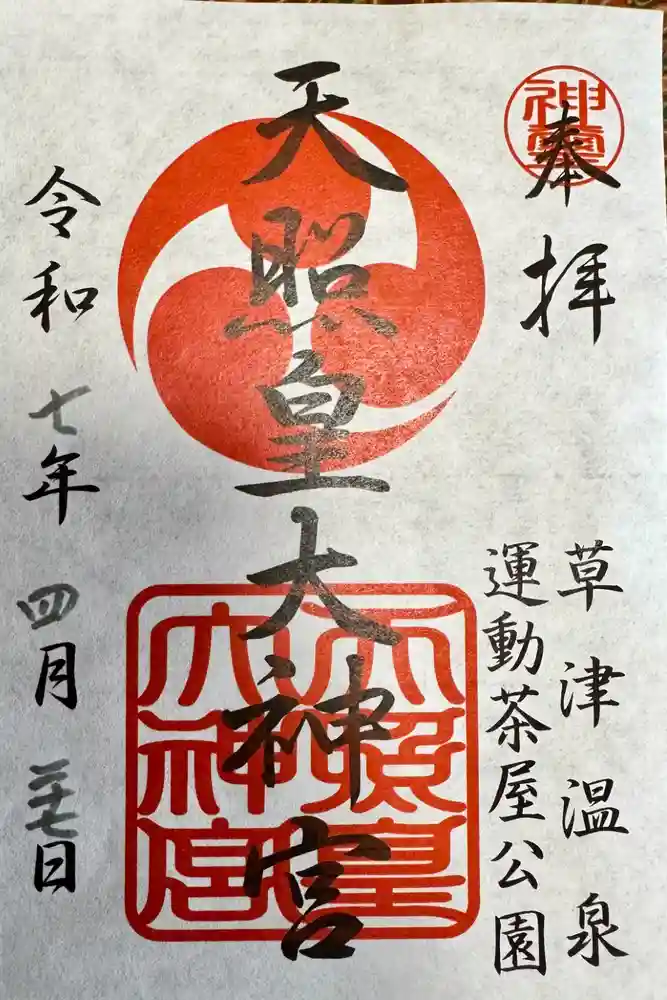 奉拝
神璽
草津温泉
運動茶屋公園
天照皇大神宮
天照皇
大神宮
令和七年四月二十七日